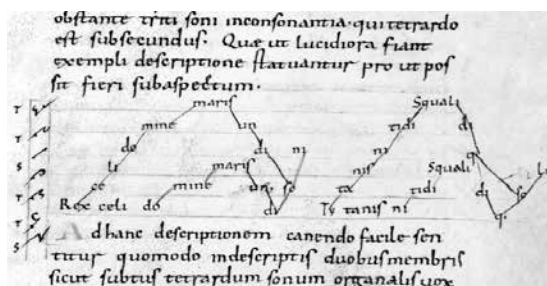 obstante triti soni inconsonantia. qui tetrardo
est subsecundus. Quæ ut lucidiora fiant
exempli descriptione statuantur pro ut pos
sit fieri sub aspectum.
maris Squali
mine un tidi di
do di ni ni q
li maris nis Squali
ce mine un so ta tidi di so
Rex celi do di Ty tanis ni q
T
T
S
T
T
S
d hanc descriptionem canendo facile sen
titur quomodo in descriptis duobus membris
sicut subtus tetrardum sonum organalis vox